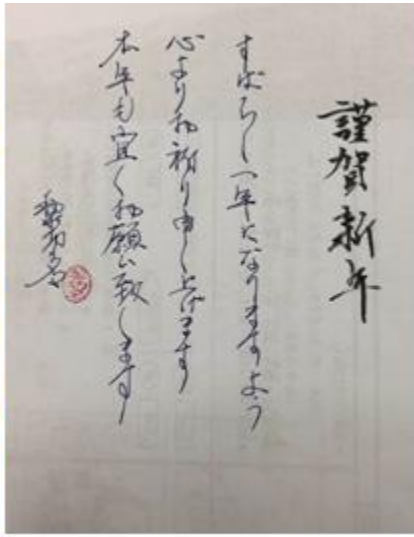 謹賀新年
すばらしい一年になりますよう
心より お祈り申し上げます
本年も宜しくお願い致します